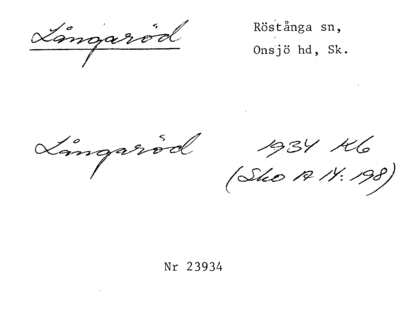 Långaröd
Röstånga sn,
Onsjö hd, Sk.
Långaröd
1934 K6
(Sko A IV: 198)
Nr 23934